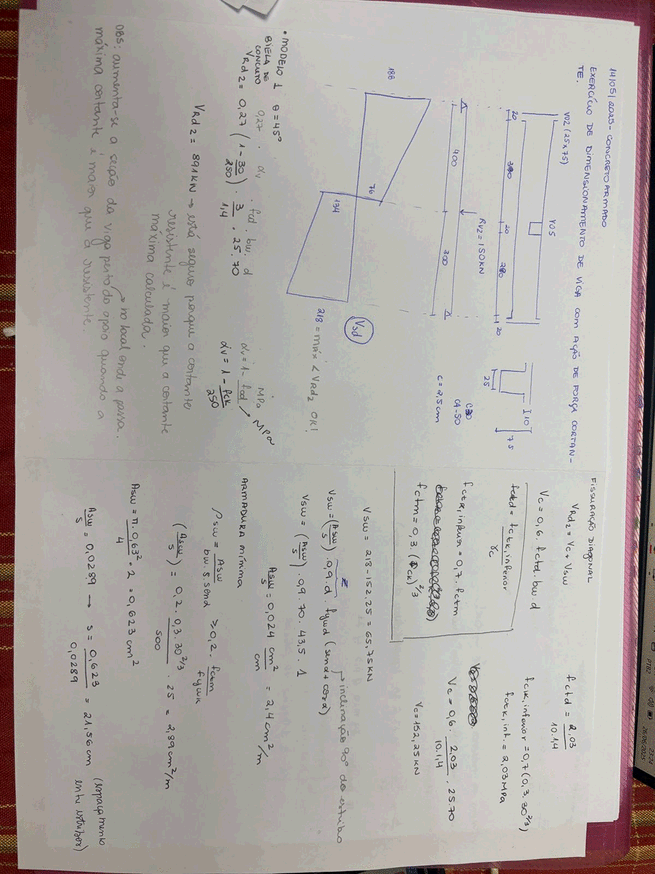 14/05/2025 - CONCRETO ARMADO
EXERCÍCIO DE DIMENSIONAMENTO DE VIGA COM AÇÃO DE FORÇA CORTAN-
TE.
V02 (25x75)
V05
20
380
20
280
20
25
10
75
C30
CA-50
C = 2,5cm
400
300
RV2 = 150KN
188
76
134
218 = máx < VRd2 OK!
Vsd
• MODELO 1 θ = 45°
BIELA DE
CONCRETO
0,27 . αv . fcd . bw . d
VRd2 = 0,27 (1 - 30/250) . 3/1,4 . 25 . 70
αv = 1 - fcd
MPa
αv = 1 - fck/250
MPa
VRd2 = 891KN → está seguro porque a cortante
resistente é maior que a cortante
máxima calculada.
→ no local onde a passa.
OBS: aumenta-se a seção da viga perto do apoio quando a
máxima cortante é maior que a resistente.
FISSURAÇÃO DIAGONAL
VRd2 = Vc + Vsw
Vc = 0,6 . fctd . bw . d
fctd = fctk,inferior/γc
fctk,inferior = 0,7 . fctm
fctm = 0,3 . (fck)^2/3
fctd = 2,03/10.1,4
fctk,inferior = 0,7 (0,3 . 30^2/3)
fctk,inf. = 2,03MPa
Vc = 0,6 . 2,03/10.1,4 . 25.70
Vc = 152,25KN
Vsw = 218 - 152,25 = 65,75KN
z
Vsw = (Asw/s) . 0,9 . d . fywd (senα + cosα)
→ inclinação 90° do estribo
Vsw = (Asw/s) . 0,9 . 70 . 43,5 . 1
Asw/s = 0,024 cm²/cm = 2,4cm²/m
ARMADURA MÍNIMA
ρsw = Asw/bw.s.senα ≥ 0,2 . fctm/fywk
(Asw/s) = 0,2 . 0,3 . 30^2/3/500 . 25 = 2,89cm²/m
Asw = π . 0,63²/4 . 2 = 0,623 cm²
Asw/s = 0,0289 → s = 0,623/0,0289 = 21,56cm (espaçamento
entre estribos)